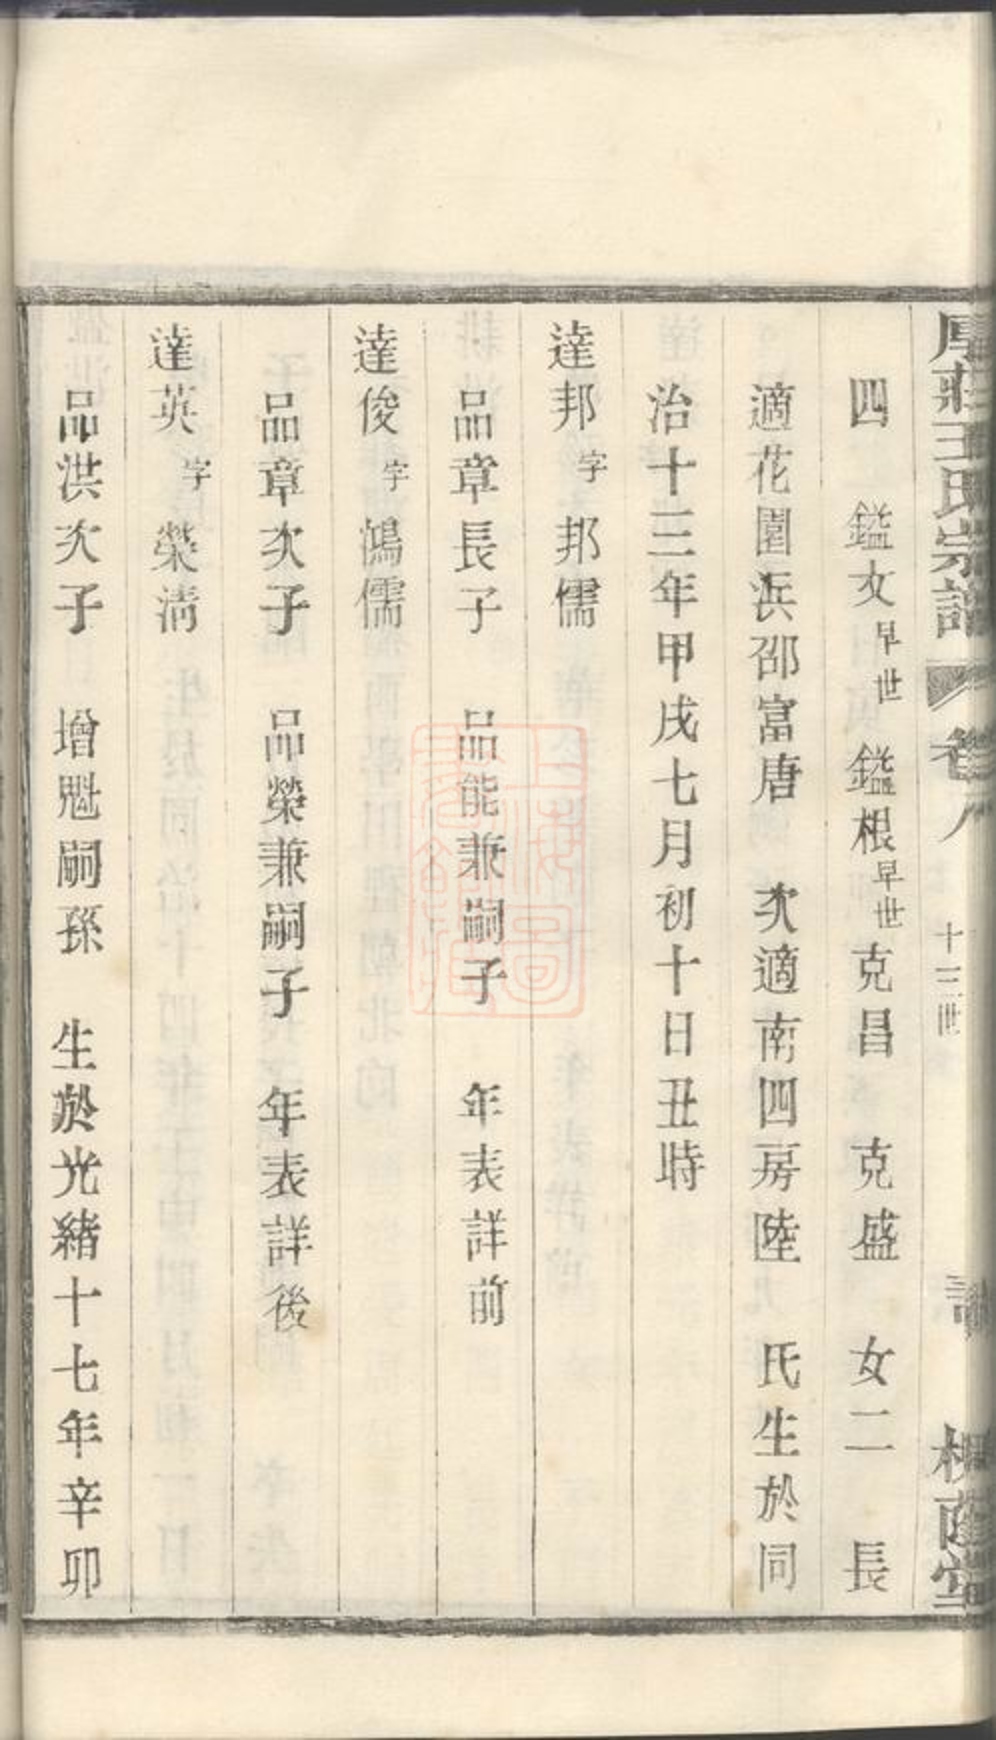 厚莊王氏宗譜 卷八 十三世 槐蔭堂
四 鎰文早世 鎰根早世克昌 克盛 女二 長
適花園浜邵富唐 次適南四房陸 氏生於同
治十三年甲戌七月初十日丑時
達邦字邦儒
品章長子 品能兼嗣子 年表詳前
達俊字鴻儒
品章次子 品榮兼嗣子 年表詳後
達英字榮清
品洪次子 增魁嗣孫 生於光緒十七年辛卯